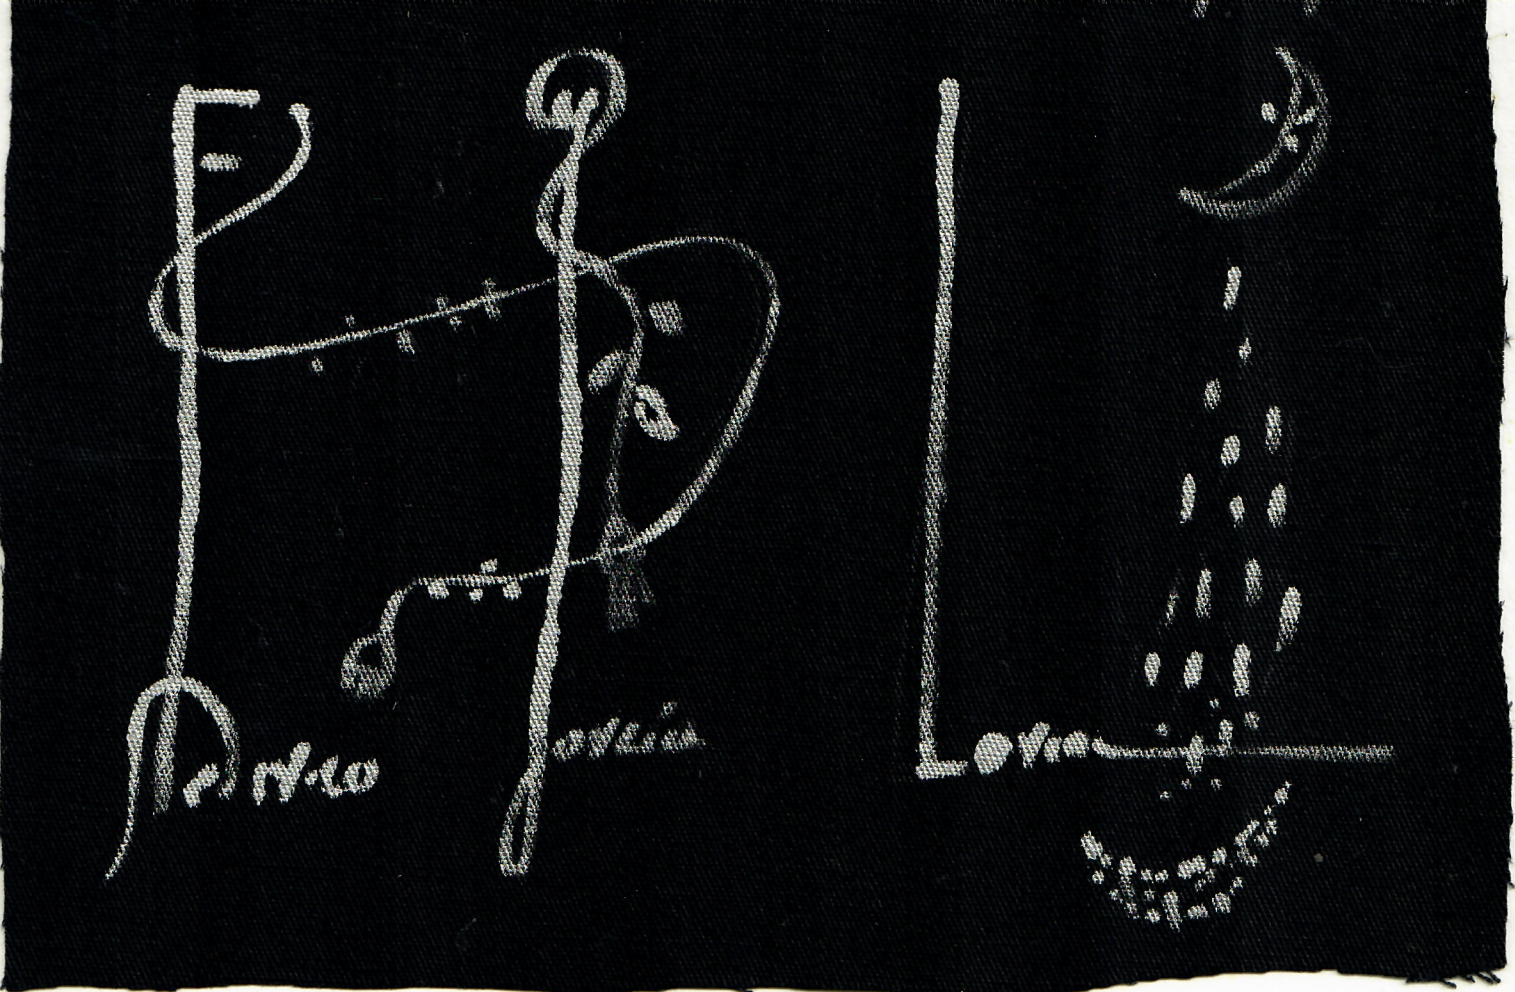 Federico García Lorca